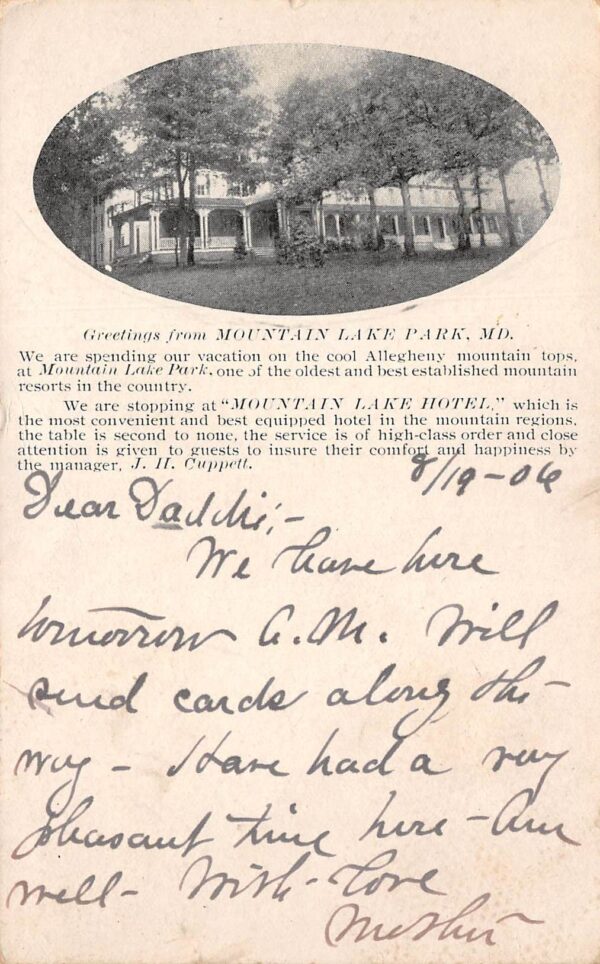 Greetings from MOUNTAIN LAKE PARK, MD.
We are spending our vacation on the cool Allegheny mountain tops,
at Mountain Lake Park, one of the oldest and best established mountain
resorts in the country.
We are stopping at "MOUNTAIN LAKE HOTEL," which is
the most convenient and best equipped hotel in the mountain regions,
the table is second to none, the service is of high-class order and close
attention is given to guests to insure their comfort and happiness by
the manager, J. H. Cuppett.
8/19-06
Dear Daddie;-
We leave here
tomorrow A.M. Will
send cards along the-
way - Have had a very
pleasant time here - Am
well - With - Love
Mother